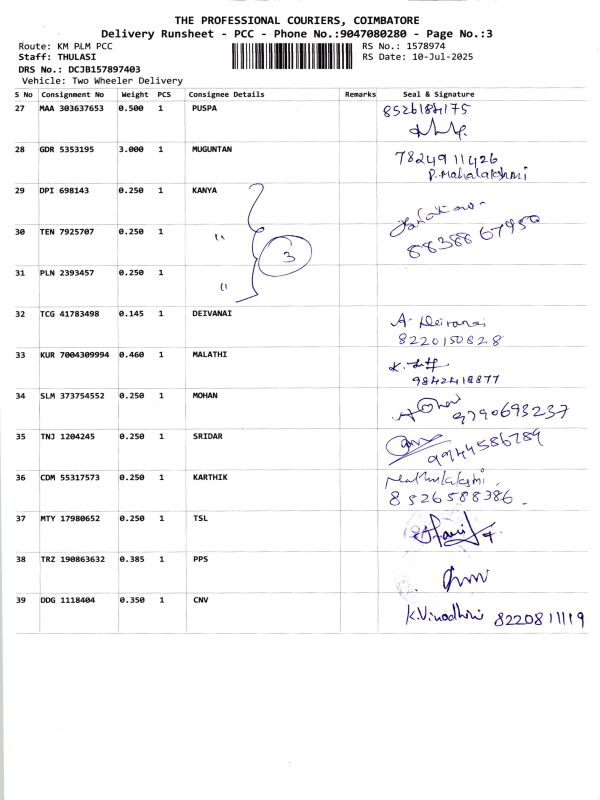 THE PROFESSIONAL COURIERS, COIMBATORE
Delivery Runsheet - PCC - Phone No.:9047080280 - Page No.:3
Route: KM PLM PCC RS No.: 1578974
Staff: THULASI RS Date: 10-Jul-2025
DRS No.: DCJB157897403
Vehicle: Two Wheeler Delivery
S No Consignment No Weight PCS Consignee Details Remarks Seal & Signature
27 MAA 303637653 0.500 1 PUSPA 8526184175
28 GDR 5353195 3.000 1 MUGUNTAN 7824911426
P. Mahalakshmi
29 DPI 698143 0.250 1 KANYA
30 TEN 7925707 0.250 1 " 8838867950
3
31 PLN 2393457 0.250 1 "
32 TCG 41783498 0.145 1 DEIVANAI A. Deivanai
8220150828
33 KUR 7004309994 0.460 1 MALATHI
9842418877
34 SLM 373754552 0.250 1 MOHAN 9790693237
35 TNJ 1204245 0.250 1 SRIDAR 9944586789
36 CDM 55317573 0.250 1 KARTHIK
8526588386.
37 MTY 17980652 0.250 1 TSL
38 TRZ 190863632 0.385 1 PPS
39 DDG 1118404 0.350 1 CNV K.Vinodhini 8220811119